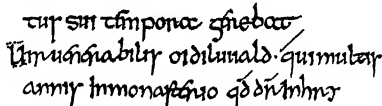 tus sui temporae gerebat
Uir uenerabilis oidiluuald · qui multis
annis in monasterio qd dr